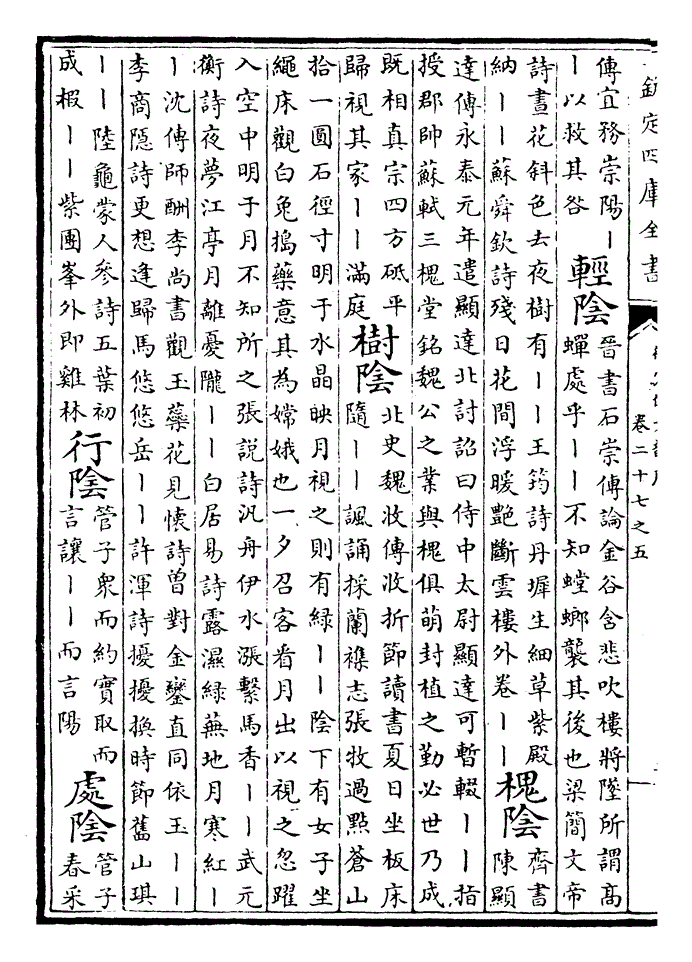 欽定四庫全書
卷二十七之五
傳宜務崇陽丨
丨以救其咎
輕陰
晉書石崇傳論金谷含悲吹樓將墜所謂高
蟬處乎丨丨不知螳螂襲其後也梁簡文帝
詩晝花斜色去夜樹有丨丨王筠詩丹墀生細草紫殿
納丨丨蘇舜欽詩殘日花間浮暖艷斷雲樓外卷丨丨
槐陰
齊書
陳顯
達傳永泰元年遣顯達北討詔曰侍中太尉顯達可暫輟丨丨指
授郡帥蘇軾三槐堂銘魏公之業與槐俱萌封植之勤必世乃成
既相真宗四方砥平
歸視其家丨丨滿庭
樹陰
北史魏收傳收折節讀書夏日坐板床
隨丨丨諷誦採蘭襍志張牧過點蒼山
拾一圓石徑寸明于水晶映月視之則有緑丨丨陰下有女子坐
繩床觀白兔搗藥意其為嫦娥也一夕召客看月出以視之忽躍
入空中明于月不知所之張說詩汎舟伊水漲繫馬香丨丨武元
衡詩夜夢江亭月離憂隴丨丨白居易詩露濕緑蕪地月寒紅丨
丨沈傅師酬李尚書觀玉蘂花見懷詩曾對金鑾直同依玉丨丨
李商隱詩更想逢歸馬悠悠岳丨丨許渾詩擾擾換時節舊山琪
丨丨陸龜蒙人參詩五葉初
成椵丨丨紫團峯外即雞林
行陰
管子衆而約實取而
言讓丨丨而言陽
處陰
管子
春采